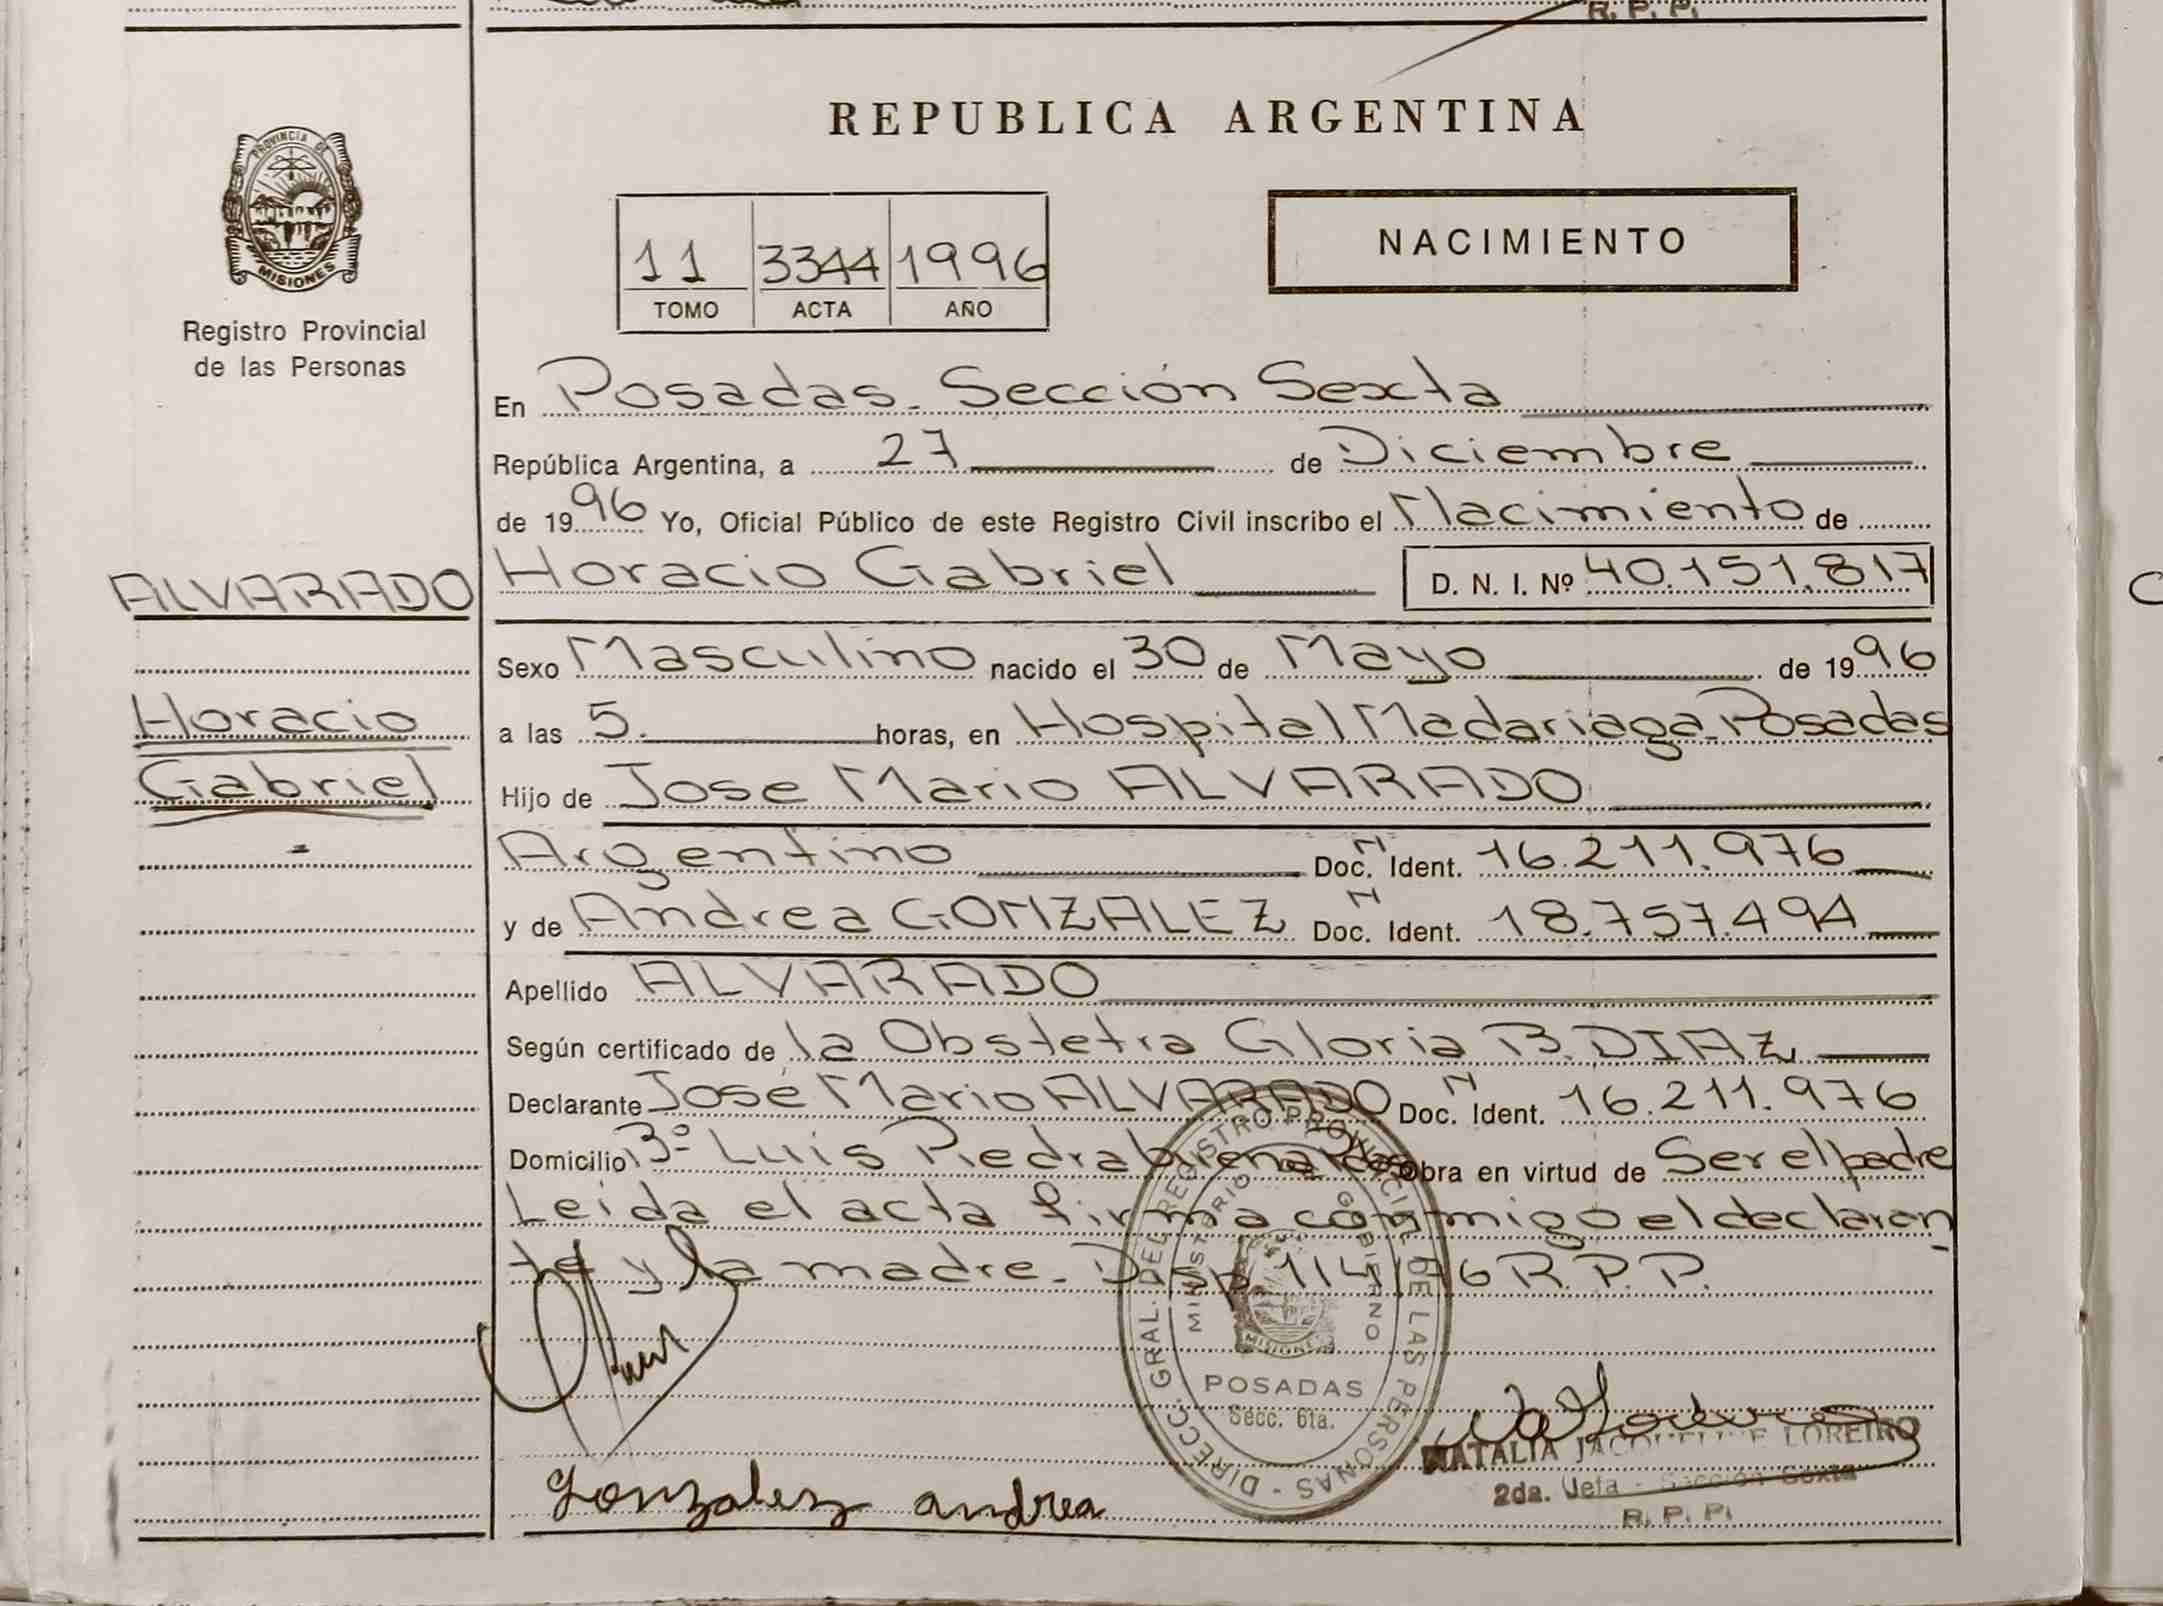 R. P. P.
REPUBLICA ARGENTINA
PROVINCIA DE
MISIONES
Registro Provincial
de las Personas
11 3344 1996
TOMO ACTA AÑO
NACIMIENTO
En Posadas - Sección Sexta
República Argentina, a 27 de Diciembre
de 1996 Yo, Oficial Público de este Registro Civil inscribo el Nacimiento de
ALVARADO
Horacio Gabriel D. N. I. Nº 40.151.817
Sexo Masculino nacido el 30 de Mayo de 1996
Horacio
a las 5. horas, en Hospital Madariaga - Posadas
Gabriel
Hijo de Jose Mario ALVARADO
Argentino Doc. N Ident. 16.211.976
y de Andrea GONZALEZ Doc. N Ident. 18.757.494
Apellido ALVARADO
Según certificado de la Obstetra Gloria B. DIAZ
Declarante José Mario ALVARADO Doc. N Ident. 16.211.976
Domicilio Bº Luis Piedrabuena Pdas Obra en virtud de Ser el padre
Leida el acta firma conmigo el declaran
te y la madre - Disp. 114/76 R.P.P.
DIRECC. GRAL. DEL REGISTRO PROVINCIAL DE LAS PERSONAS
MINISTERIO GOBIERNO
MISIONES
POSADAS
Secc. 6ta.
NATALIA JACQUELINE LOREIRO
2da. Jefa - Sección Sexta
R. P. P.
Gonzalez andrea